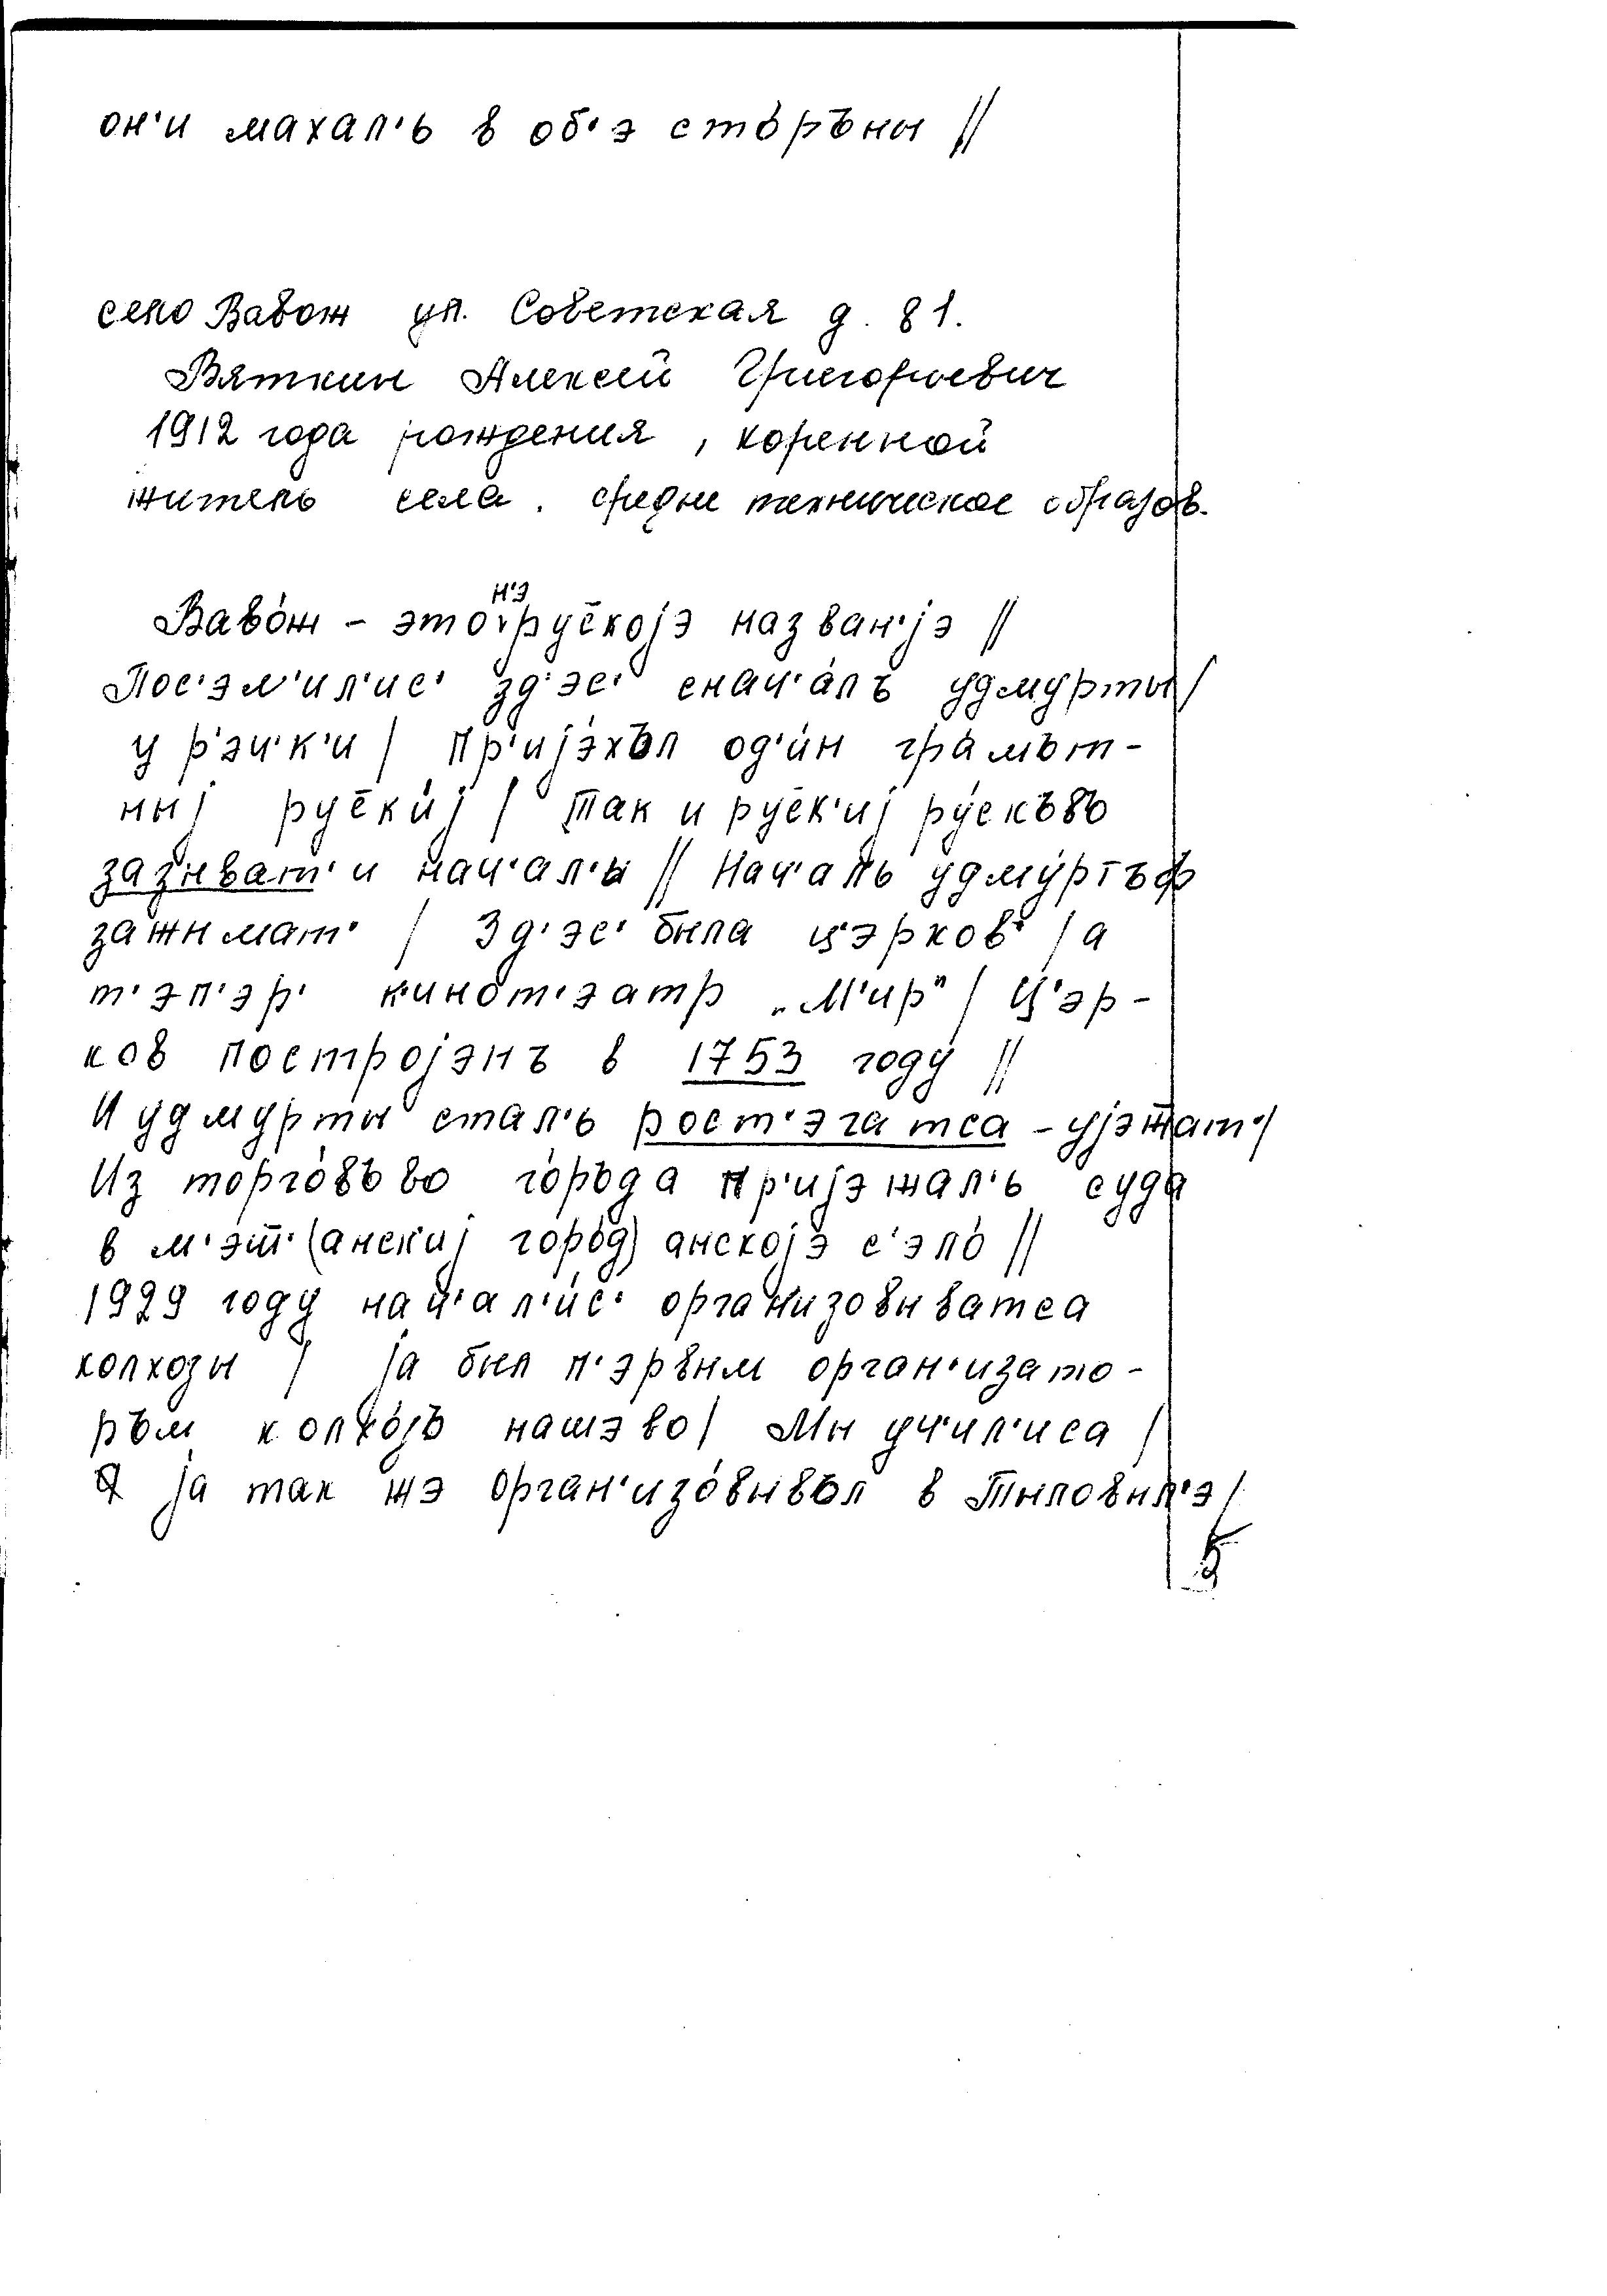 он'и махал'ь в об'э сто́ръны //
село Вавож ул. Советская д. 81.
Вяткин Алексей Григорьевич
1912 года рождения, коренной
житель села. средне техническое образов.
н'э
Ваво́ж – это рус̄којэназван'јэ //
Пос'эл'ил'ис' зд'эс' снач'а́лъ удмурты /
у р'эч'к'и / Пр'ијэ́хъл од'и́н гра́мът-
ныј рус̄ќиј / Так и рус̄к'иј ру́скъвъ
зазыват' и нач'ал'и // Нач'аль удму́ртъф
зажимат' / Зд'эс' была цэрков' / а
т'эп'эр' к'инот'эатр „М'ир" / Ц'эр-
ков постројэнъ в 1753 году́ //
И удмурты стал'ь рост'эгатса – ујэжат' /
Из торго́въво го́ръда пр'ијэжал'ь суда
в м'эт̄'(анскиј го́род) анскојэ с'эло́ //
1929 году нач'ал'и́с' орган'изовыватса
колхозы / ја был п'эрвым орган'изато-
ръм колхо́зъ нашэво / Мы уч'ил'иса /
а ја так жэ орган'изо́вывъл в Тыловыл'э /
5